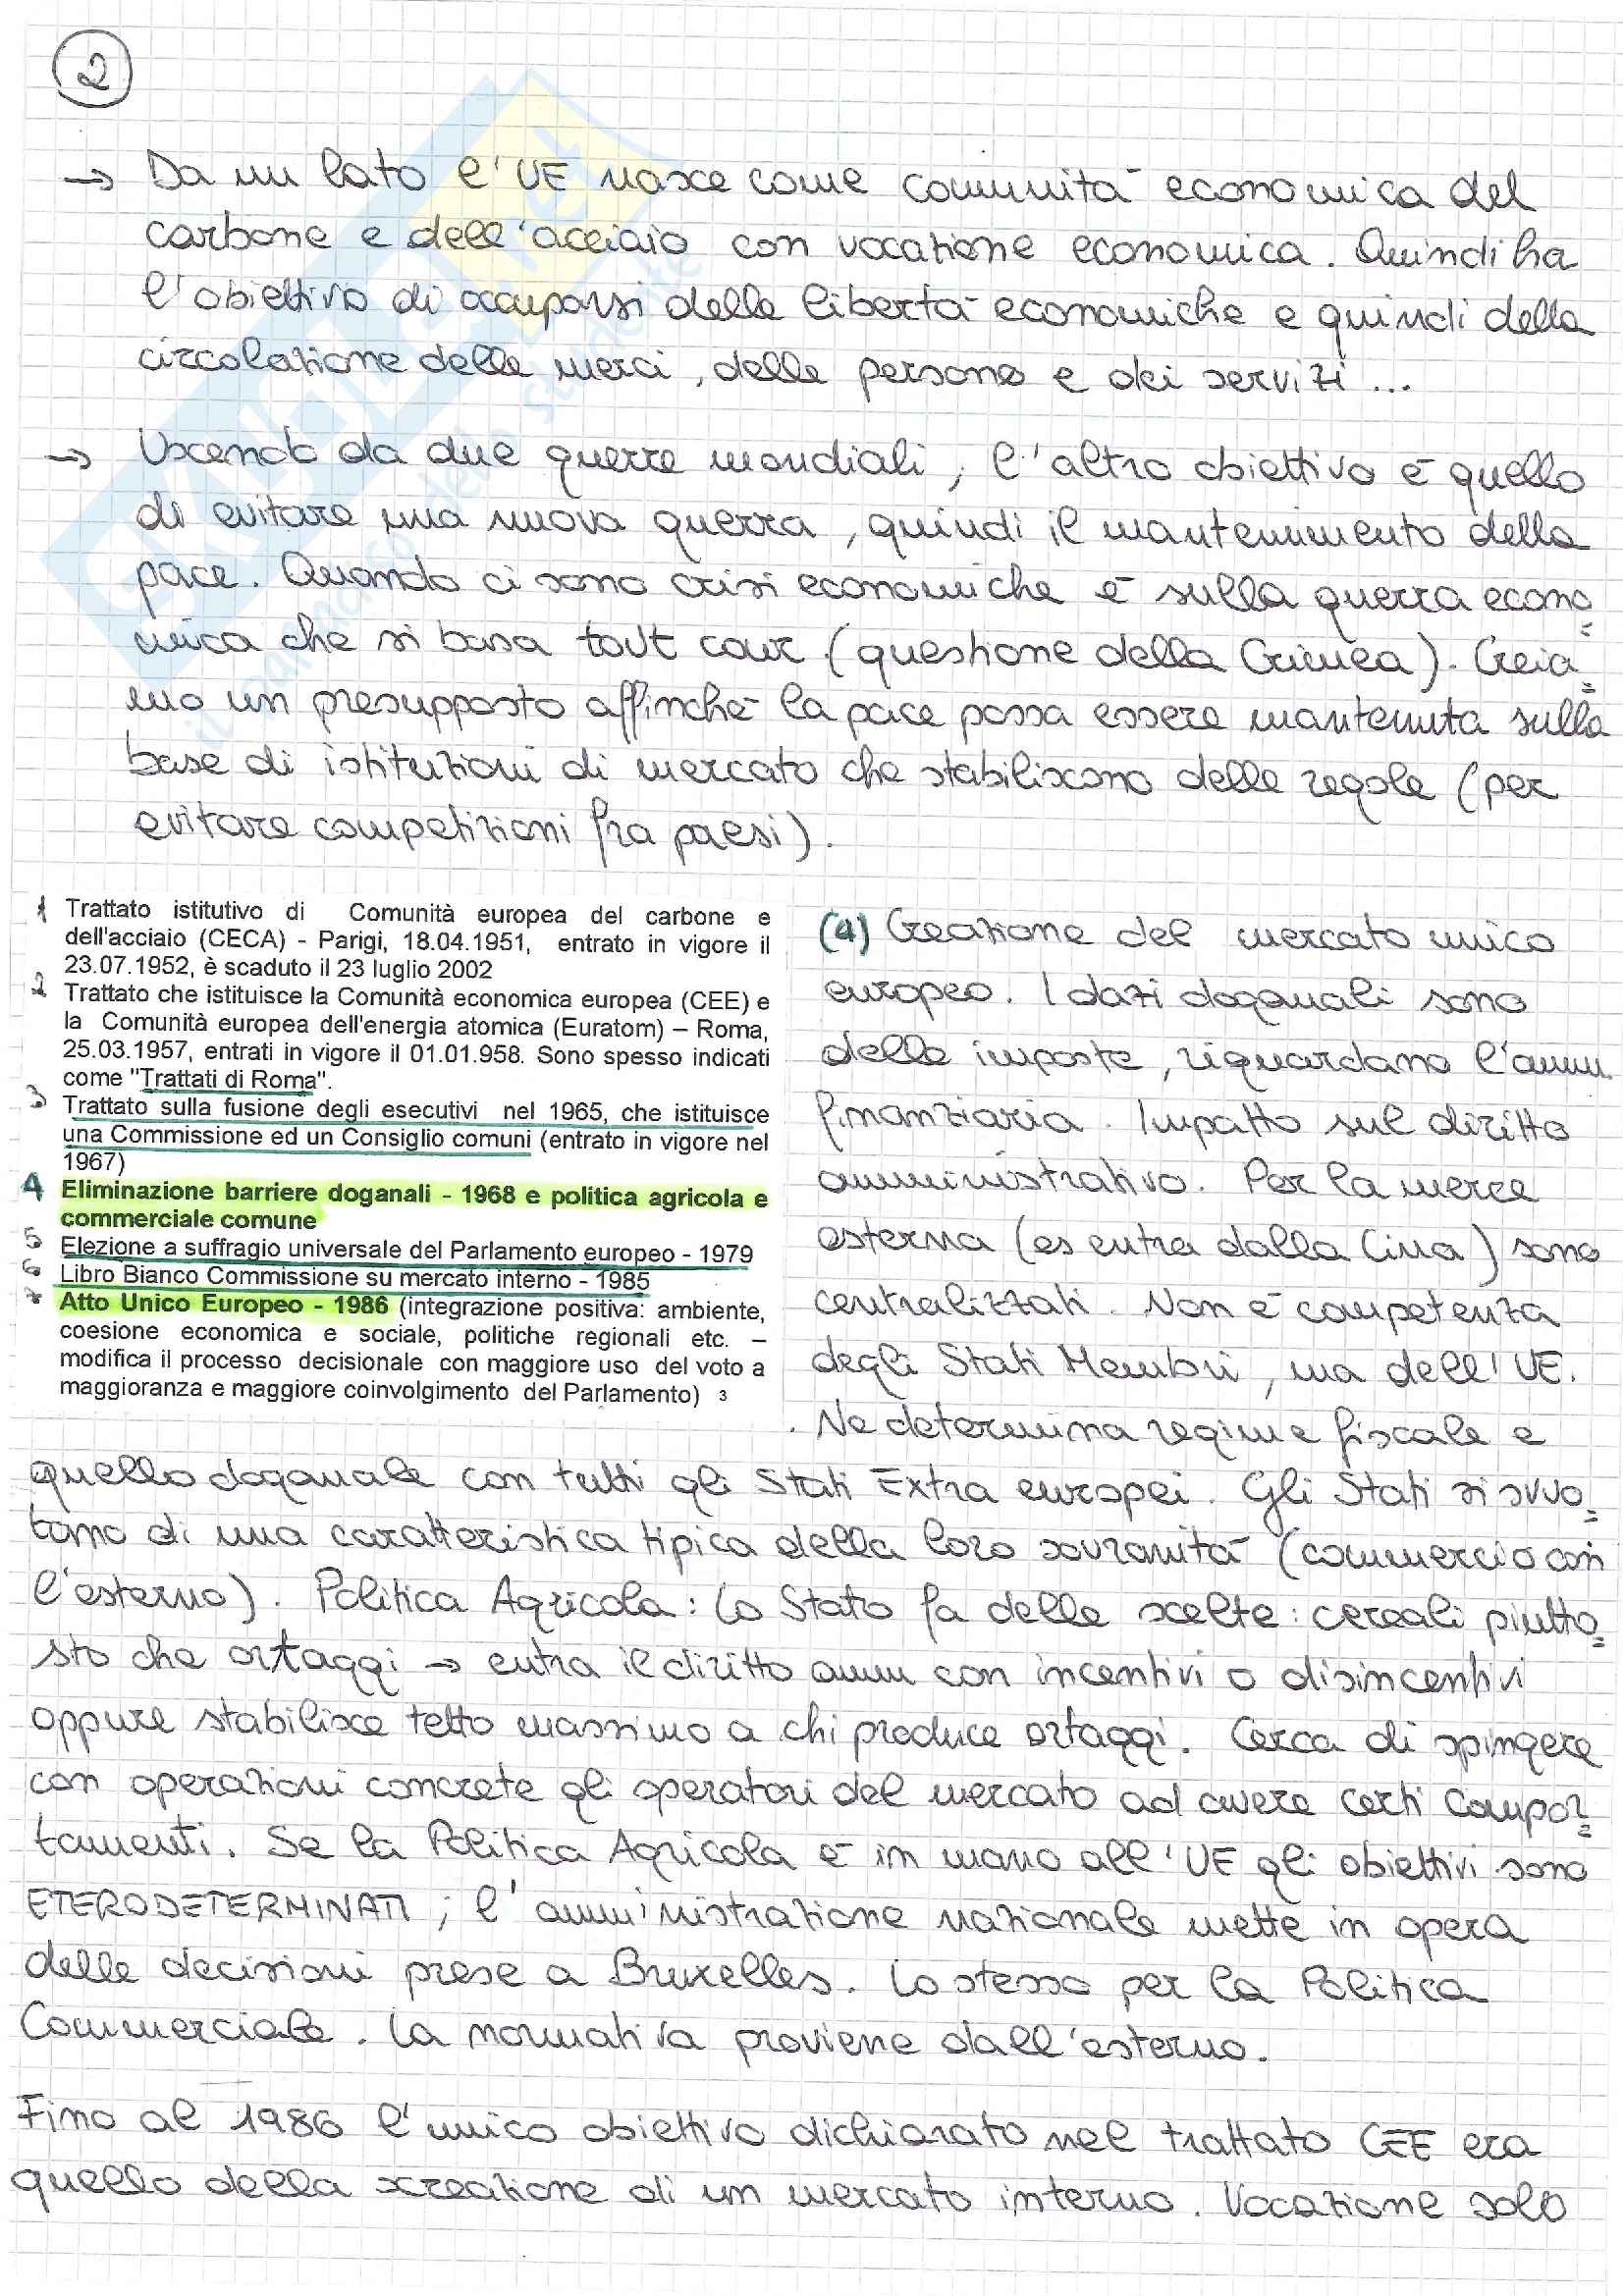 2
→ Da un lato l'UE nasce come comunità economica del
carbone e dell'acciaio con vocazione economica. Quindi ha
l'obiettivo di occuparsi delle libertà economiche e quindi della
circolazione delle merci, delle persone e dei servizi...
→ Uscendo da due guerre mondiali, l'altro obiettivo è quello
di evitare una nuova guerra, quindi il mantenimento della
pace. Quando ci sono crisi economiche è sulla guerra econo=
mica che si basa tout cour (questione della Crimea). Creia=
mo un presupposto affinchè la pace possa essere mantenuta sulla
base di istituzioni di mercato che stabiliscono delle regole (per
evitare competizioni fra paesi).
1 Trattato istitutivo di Comunità europea del carbone e
dell'acciaio (CECA) - Parigi, 18.04.1951, entrato in vigore il
23.07.1952, è scaduto il 23 luglio 2002
2 Trattato che istituisce la Comunità economica europea (CEE) e
la Comunità europea dell'energia atomica (Euratom) – Roma,
25.03.1957, entrati in vigore il 01.01.958. Sono spesso indicati
come "Trattati di Roma".
3 Trattato sulla fusione degli esecutivi nel 1965, che istituisce
una Commissione ed un Consiglio comuni (entrato in vigore nel
1967)
4 Eliminazione barriere doganali - 1968 e politica agricola e
commerciale comune
5 Elezione a suffragio universale del Parlamento europeo - 1979
6 Libro Bianco Commissione su mercato interno - 1985
7 Atto Unico Europeo - 1986 (integrazione positiva: ambiente,
coesione economica e sociale, politiche regionali etc. –
modifica il processo decisionale con maggiore uso del voto a
maggioranza e maggiore coinvolgimento del Parlamento) 3
(4) Creazione del mercato unico
europeo. I dazi doganali sono
delle imposte, riguardano l'amm.
finanziaria. Impatto sul diritto
amministrativo. Per la merce
esterna (es entra dalla Cina) sono
centralizzati. Non è competenza
degli Stati Membri, ma dell'UE.
. Ne determina regime fiscale e
quello doganale con tutti gli Stati Extra europei. Gli Stati si svuo=
tano di una caratteristica tipica della loro sovranità (commercio con
l'esterno). Politica Agricola: Lo Stato fa delle scelte: cereali piutto=
sto che ortaggi → entra il diritto amm con incentivi o disincentivi
oppure stabilisce tetto massimo a chi produce ortaggi. Cerca di spingere
con operazioni concrete gli operatori del mercato ad avere certi compor=
tamenti. Se la Politica Agricola è in mano all'UE gli obiettivi sono
ETERODETERMINATI; l'amministrazione nazionale mette in opera
delle decisioni prese a Bruxelles. Lo stesso per la Politica
Commerciale. La normativa proviene dall'esterno.
Fino al 1986 l'unico obiettivo dichiarato nel trattato CEE era
quello della creazione di un mercato interno. Vocazione solo